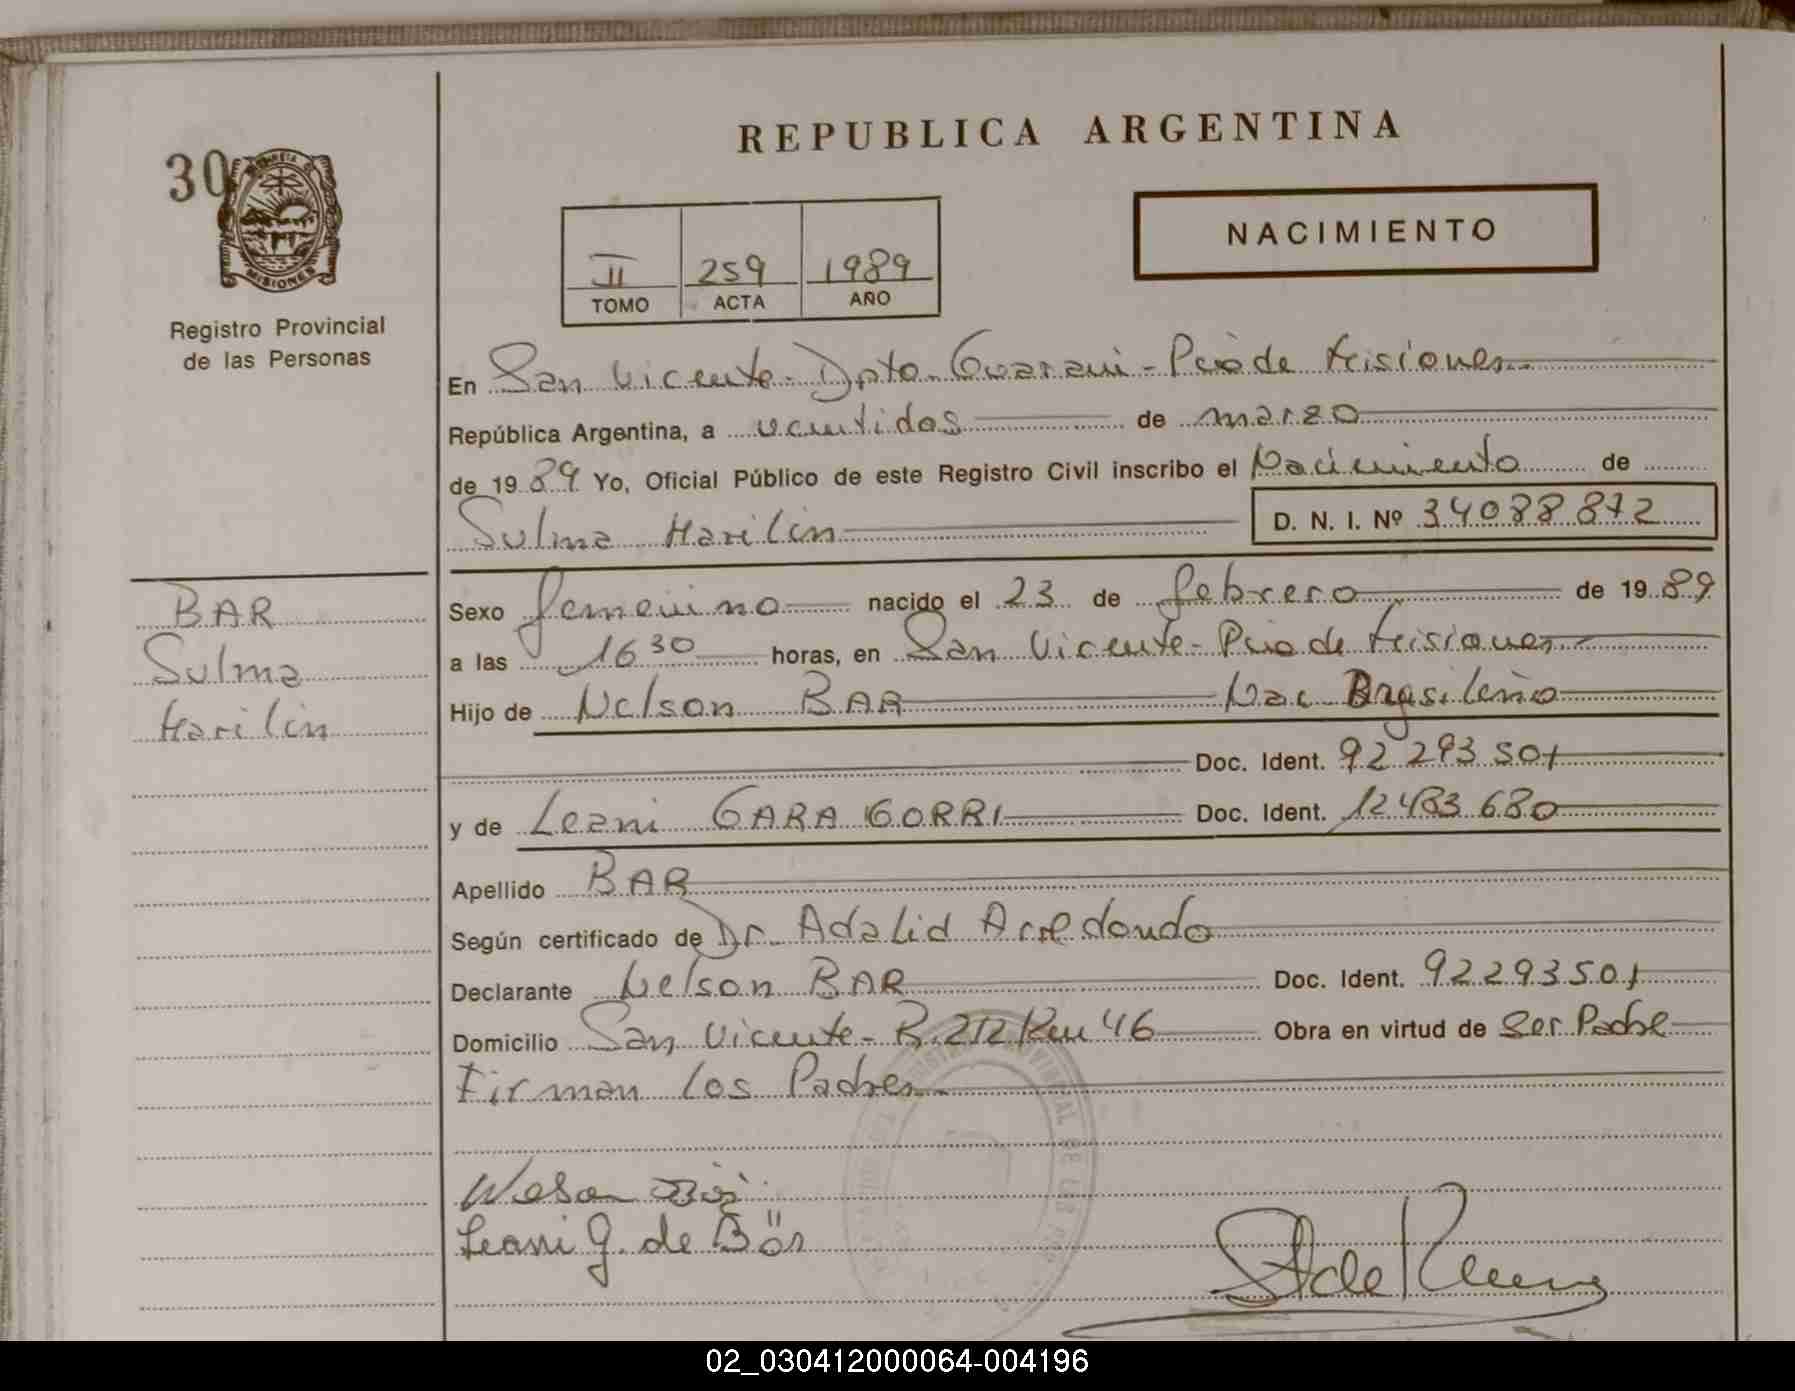 REPUBLICA ARGENTINA
30
MISIONES
Registro Provincial
de las Personas
II 259 1989
TOMO ACTA AÑO
NACIMIENTO
En San Vicente - Dpto. Guarani - Pcia de Misiones
República Argentina, a veintidos de marzo
de 1989 Yo, Oficial Público de este Registro Civil inscribo el Nacimiento de
Sulma Marilin D. N. I. Nº 34088872
BAR
Sulma
Marilin
Sexo femenino nacido el 23 de febrero de 1989
a las 16 30 horas, en San Vicente - Pcia de Misiones
Hijo de Nelson BAR Nac Brasileño
Doc. Ident. 92 293 501
y de Leani GARA GORRI Doc. Ident. 12483680
Apellido BAR
Según certificado de Dr. Adalid Arredondo
Declarante Nelson BAR Doc. Ident. 92293501
Domicilio San Vicente - R. 212 Km 46 Obra en virtud de Ser Padre
Firman los Padres
Leani G. de Bär
02_030412000064-004196